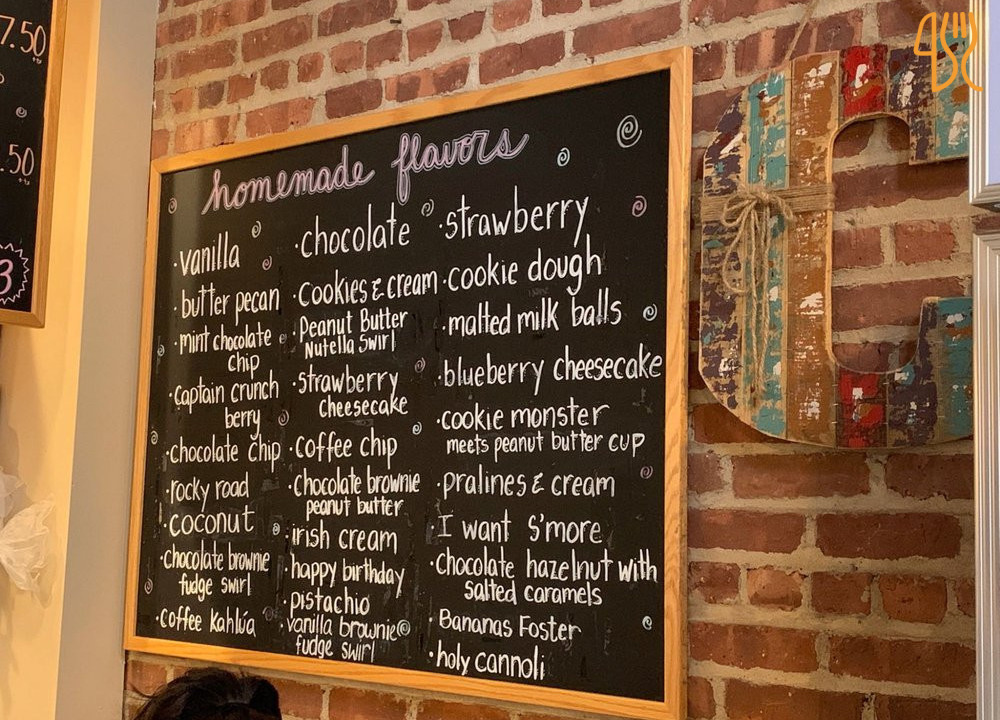 7.50
.50
3
homemade flavors
·vanilla
·butter pecan
·mint chocolate
chip
·captain crunch
berry
·chocolate chip
·rocky road
·coconut
·chocolate brownie
fudge swirl
·coffee kahlúa
·chocolate
·cookies & cream
·Peanut Butter
Nutella Swirl
·strawberry
cheesecake
·coffee chip
·chocolate brownie
peanut butter
·irish cream
·happy birthday
·pistachio
·vanilla brownie
fudge swirl
·strawberry
·cookie dough
·malted milk balls
·blueberry cheesecake
·cookie monster
meets peanut butter cup
·pralines & cream
·I want s'more
·chocolate hazelnut with
salted caramels
·Bananas Foster
·holy cannoli
C